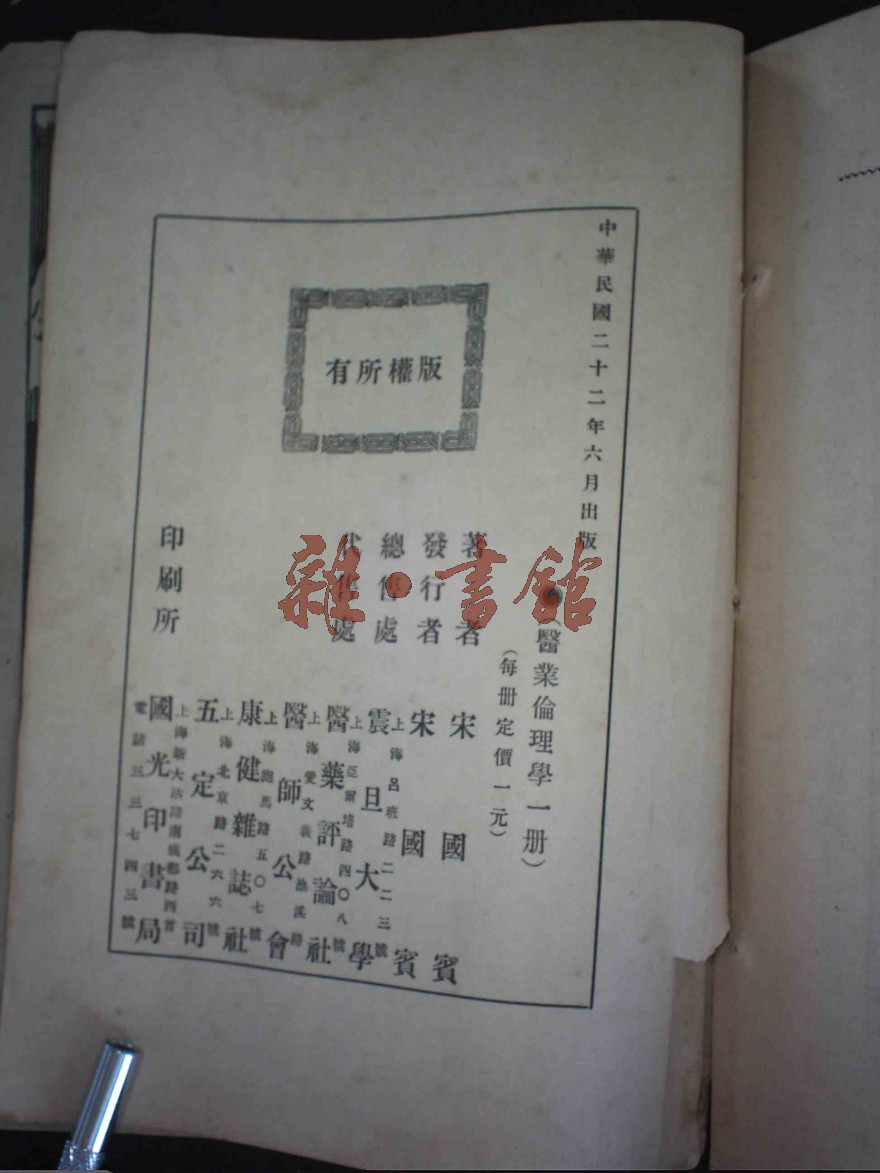 中華民國二十二年六月出版
(醫業倫理學一册)
(每册定價一元)
版權所有
著者 宋國賓
發行者 宋國賓
總售處 震旦大學
上海呂班路二二三號
代售處 醫藥評論社
上海亞爾培路四〇八號
醫師公會
上海愛文義路池浜路
康健雜誌社
上海跑馬路五〇七號
五定公司
上海北京路二六六號
印刷所 國光印書局
上海新大沽路南成都路四首
電話三三七四三號
雜·書館